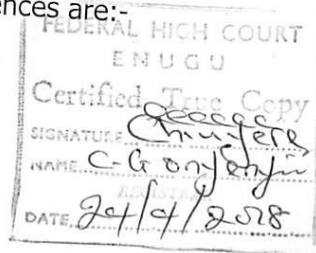 ences are:-
FEDERAL HIGH COURT
ENUGU
Certified True Copy
SIGNATURE
NAME C-G
REGISTRAR
DATE 24/4/2018